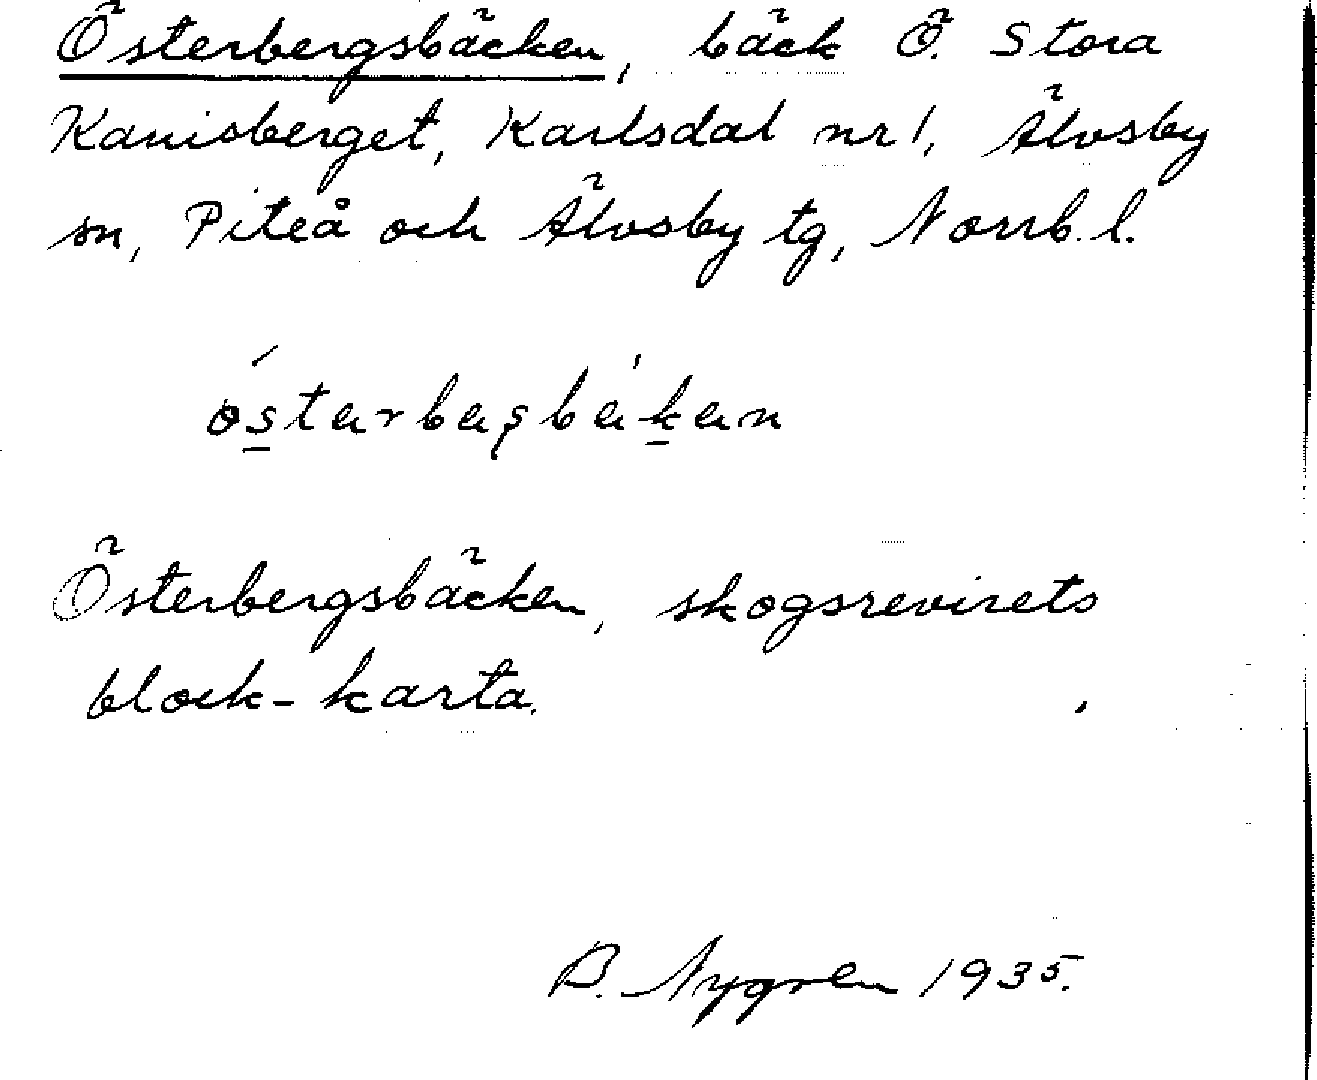 Österbergsbäcken, bäck Ö. Stora
Kanisberget, Karlsdal nr 1, Älvsby
sn, Piteå och Älvsby tg, Norrb. l.
Österbergsbäcken, skogsrevirets
block-karta.
B. Nygren 1935.